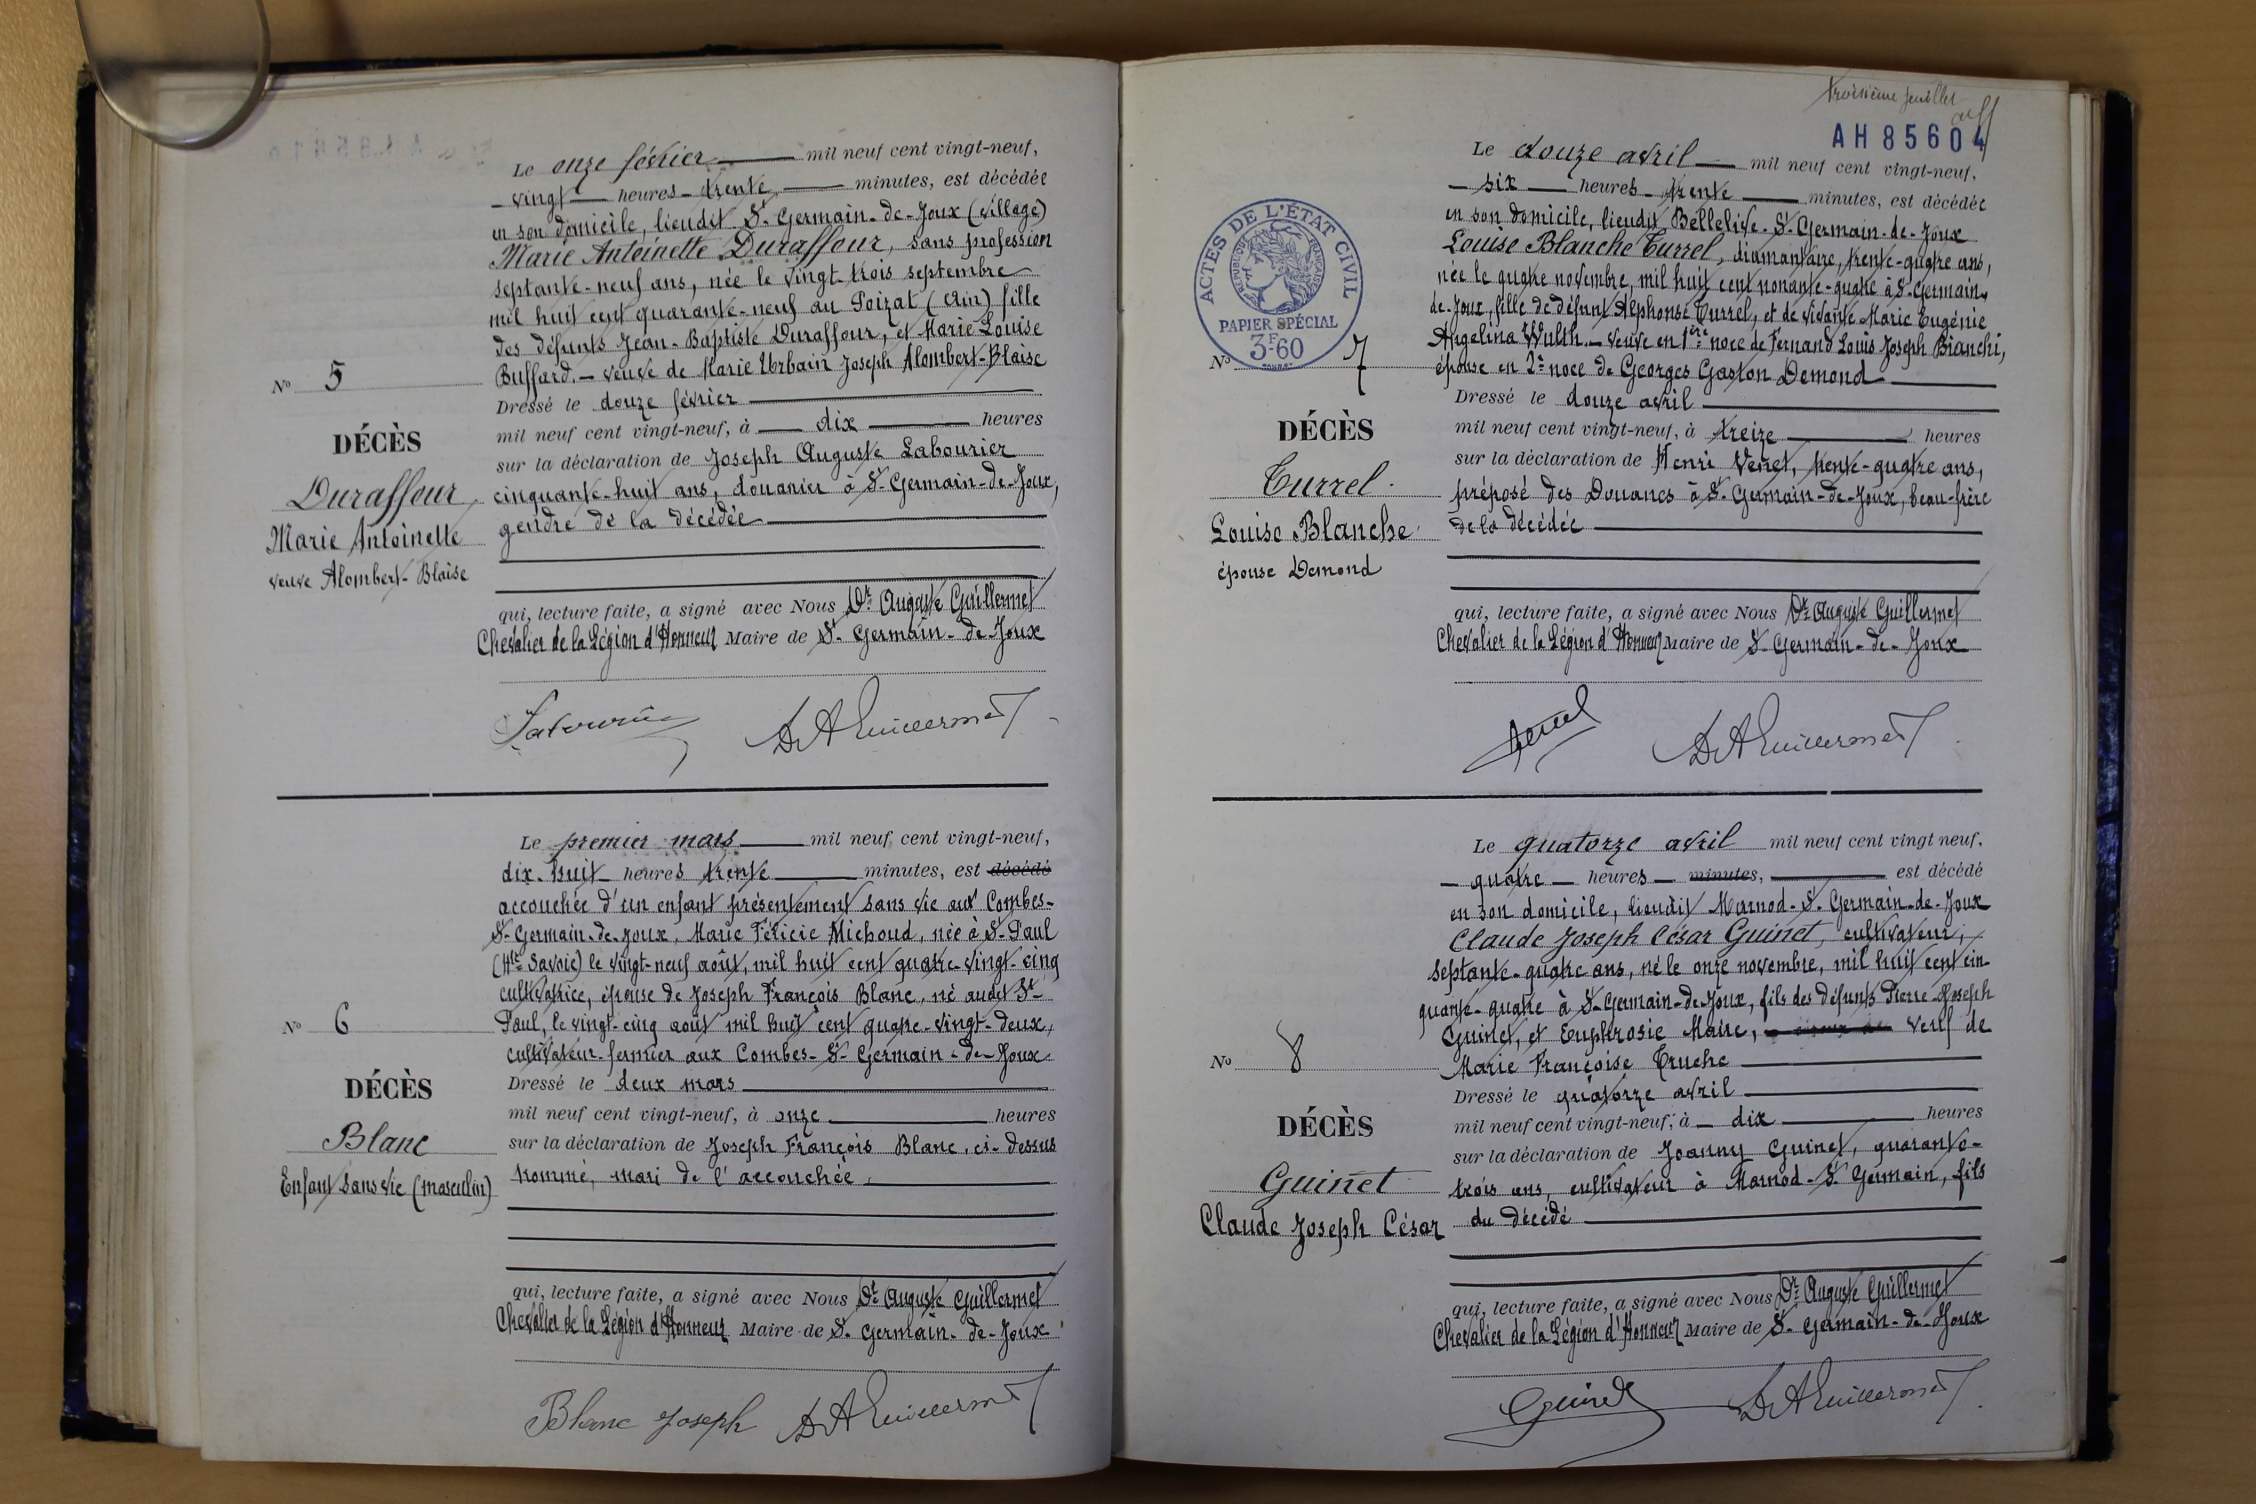 Le onze février mil neuf cent vingt-neuf,
vingt heures trente minutes, est décédée
en son domicile, lieudit St Germain-de-Joux (village)
Marie Antoinette Duraffour, sans profession
septante-neuf ans, née le vingt trois septembre
mil huit cent quarante-neuf au Poizat (Ain) fille
des défunts Jean-Baptiste Duraffour, et Marie Louise
Buffard. - veuve de Marie Urbain Joseph Alombert-Blaise
Dressé le douze février
mil neuf cent vingt-neuf, à dix heures
sur la déclaration de Joseph Auguste Labourier
cinquante-huit ans, douanier à St-Germain-de-Joux,
gendre de la décédée
qui, lecture faite, a signé avec Nous Dr Auguste Guillermet
Chevalier de la Légion d'Honneur Maire de St-Germain-de-Joux
No 5
DÉCÈS
Duraffour
Marie Antoinette
veuve Alombert-Blaise
Labourier DrAGuillermet
Le premier mars mil neuf cent vingt-neuf,
dix-huit heures trente minutes, est décédé
accouchée d'un enfant présentement sans vie aux Combes-
St-Germain-de-Joux, Marie Félicie Michoud, née à St-Paul
(Hte Savoie) le vingt-neuf août, mil huit cent quatre-vingt-cinq
cultivatrice, épouse de Joseph François Blanc, né audit St-
Paul, le vingt-cinq août mil huit cent quatre-vingt-deux,
cultivateur-fermier aux Combes-St-Germain-de-Joux
Dressé le deux mars
mil neuf cent vingt-neuf, à onze heures
sur la déclaration de Joseph François Blanc, ci-dessus
nommé, mari de l'accouchée
qui, lecture faite, a signé avec Nous Dr Auguste Guillermet
Chevalier de la Légion d'Honneur Maire de St-Germain-de-Joux
No 6
DÉCÈS
Blanc
Enfant sans vie (masculin)
Blanc Joseph DrAGuillermet
troisième feuillet
AH 85604
ACTES DE L'ÉTAT CIVIL
RÉPUBLIQUE FRANÇAISE
PAPIER SPÉCIAL
3F60
Le douze avril mil neuf cent vingt-neuf,
six heures trente minutes, est décédée
en son domicile, lieudit Bellelive-St-Germain-de-Joux
Louise Blanche Turrel, diamantaire, trente-quatre ans,
née le quatre novembre, mil huit cent nonante-quatre à St-Germain-
de-Joux, fille de défunt Alphonse Turrel, et de vivante Marie Eugénie
Angelina Wuith. - veuve en 1ère noce de Fernand Louis Joseph Bianchi,
épouse en 2e noce de Georges Gaston Demond
Dressé le douze avril
mil neuf cent vingt-neuf, à treize heures
sur la déclaration de Henri Venet, trente-quatre ans,
préposé des Douanes à St-Germain-de-Joux, beau-frère
de la décédée
qui, lecture faite, a signé avec Nous Dr Auguste Guillermet
Chevalier de la Légion d'Honneur Maire de St-Germain-de-Joux
No 7
DÉCÈS
Turrel
Louise Blanche
épouse Demond
Venet DrAGuillermet
Le quatorze avril mil neuf cent vingt neuf.
quatre heures minutes, est décédé
en son domicile, lieudit Marnod-St-Germain-de-Joux
Claude Joseph César Guinet, cultivateur,
septante-quatre ans, né le onze novembre, mil huit cent cin-
quante-quatre à St-Germain-de-Joux, fils des défunts Pierre-Joseph
Guinet, et Euphrosie Maire, veuf de
Marie Françoise Truche
Dressé le quatorze avril
mil neuf cent vingt-neuf, à dix heures
sur la déclaration de Joanny Guinet, quarante-
trois ans, cultivateur à Marnod-St Germain, fils
du décédé
qui, lecture faite, a signé avec Nous Dr Auguste Guillermet
Chevalier de la Légion d'Honneur Maire de St-Germain-de-Joux
No 8
DÉCÈS
Guinet
Claude Joseph César
Guinet DrAGuillermet